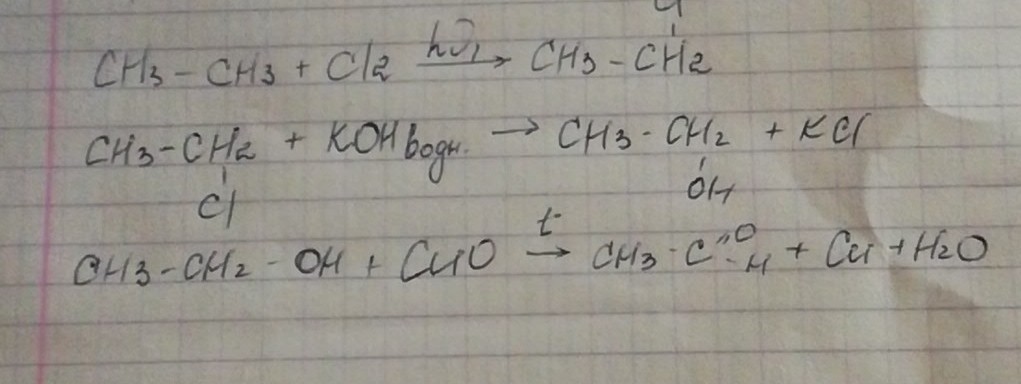 Cl
CH3 - CH3 + Cl2 hν, → CH3 - CH2
CH3 - CH2 + KOH водн. → CH3 - CH2 + KCl
Cl OH
CH3 - CH2 - OH + CuO t → CH3 - C =O -H + Cu + H2O